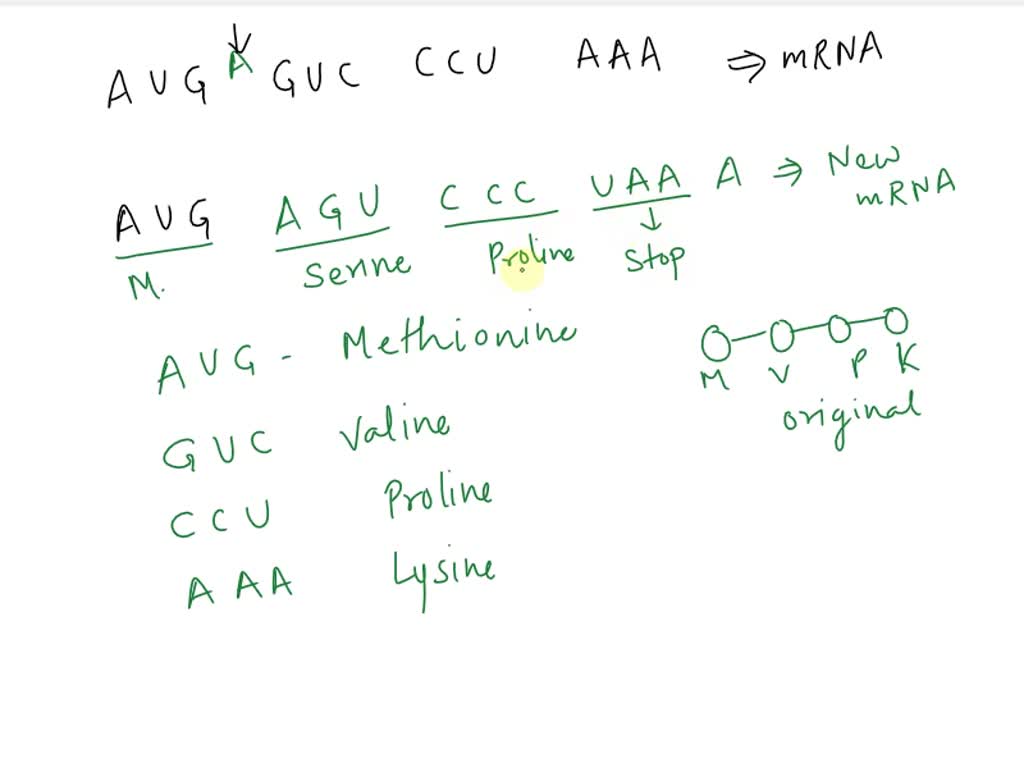 AUG A GUC CCU AAA ⇒ mRNA
AUG AGU CCC UAA A ⇒ New mRNA
M. Serine Proline Stop
AUG - Methionine
GUC Valine
CCU Proline
AAA Lysine
M V P K
original